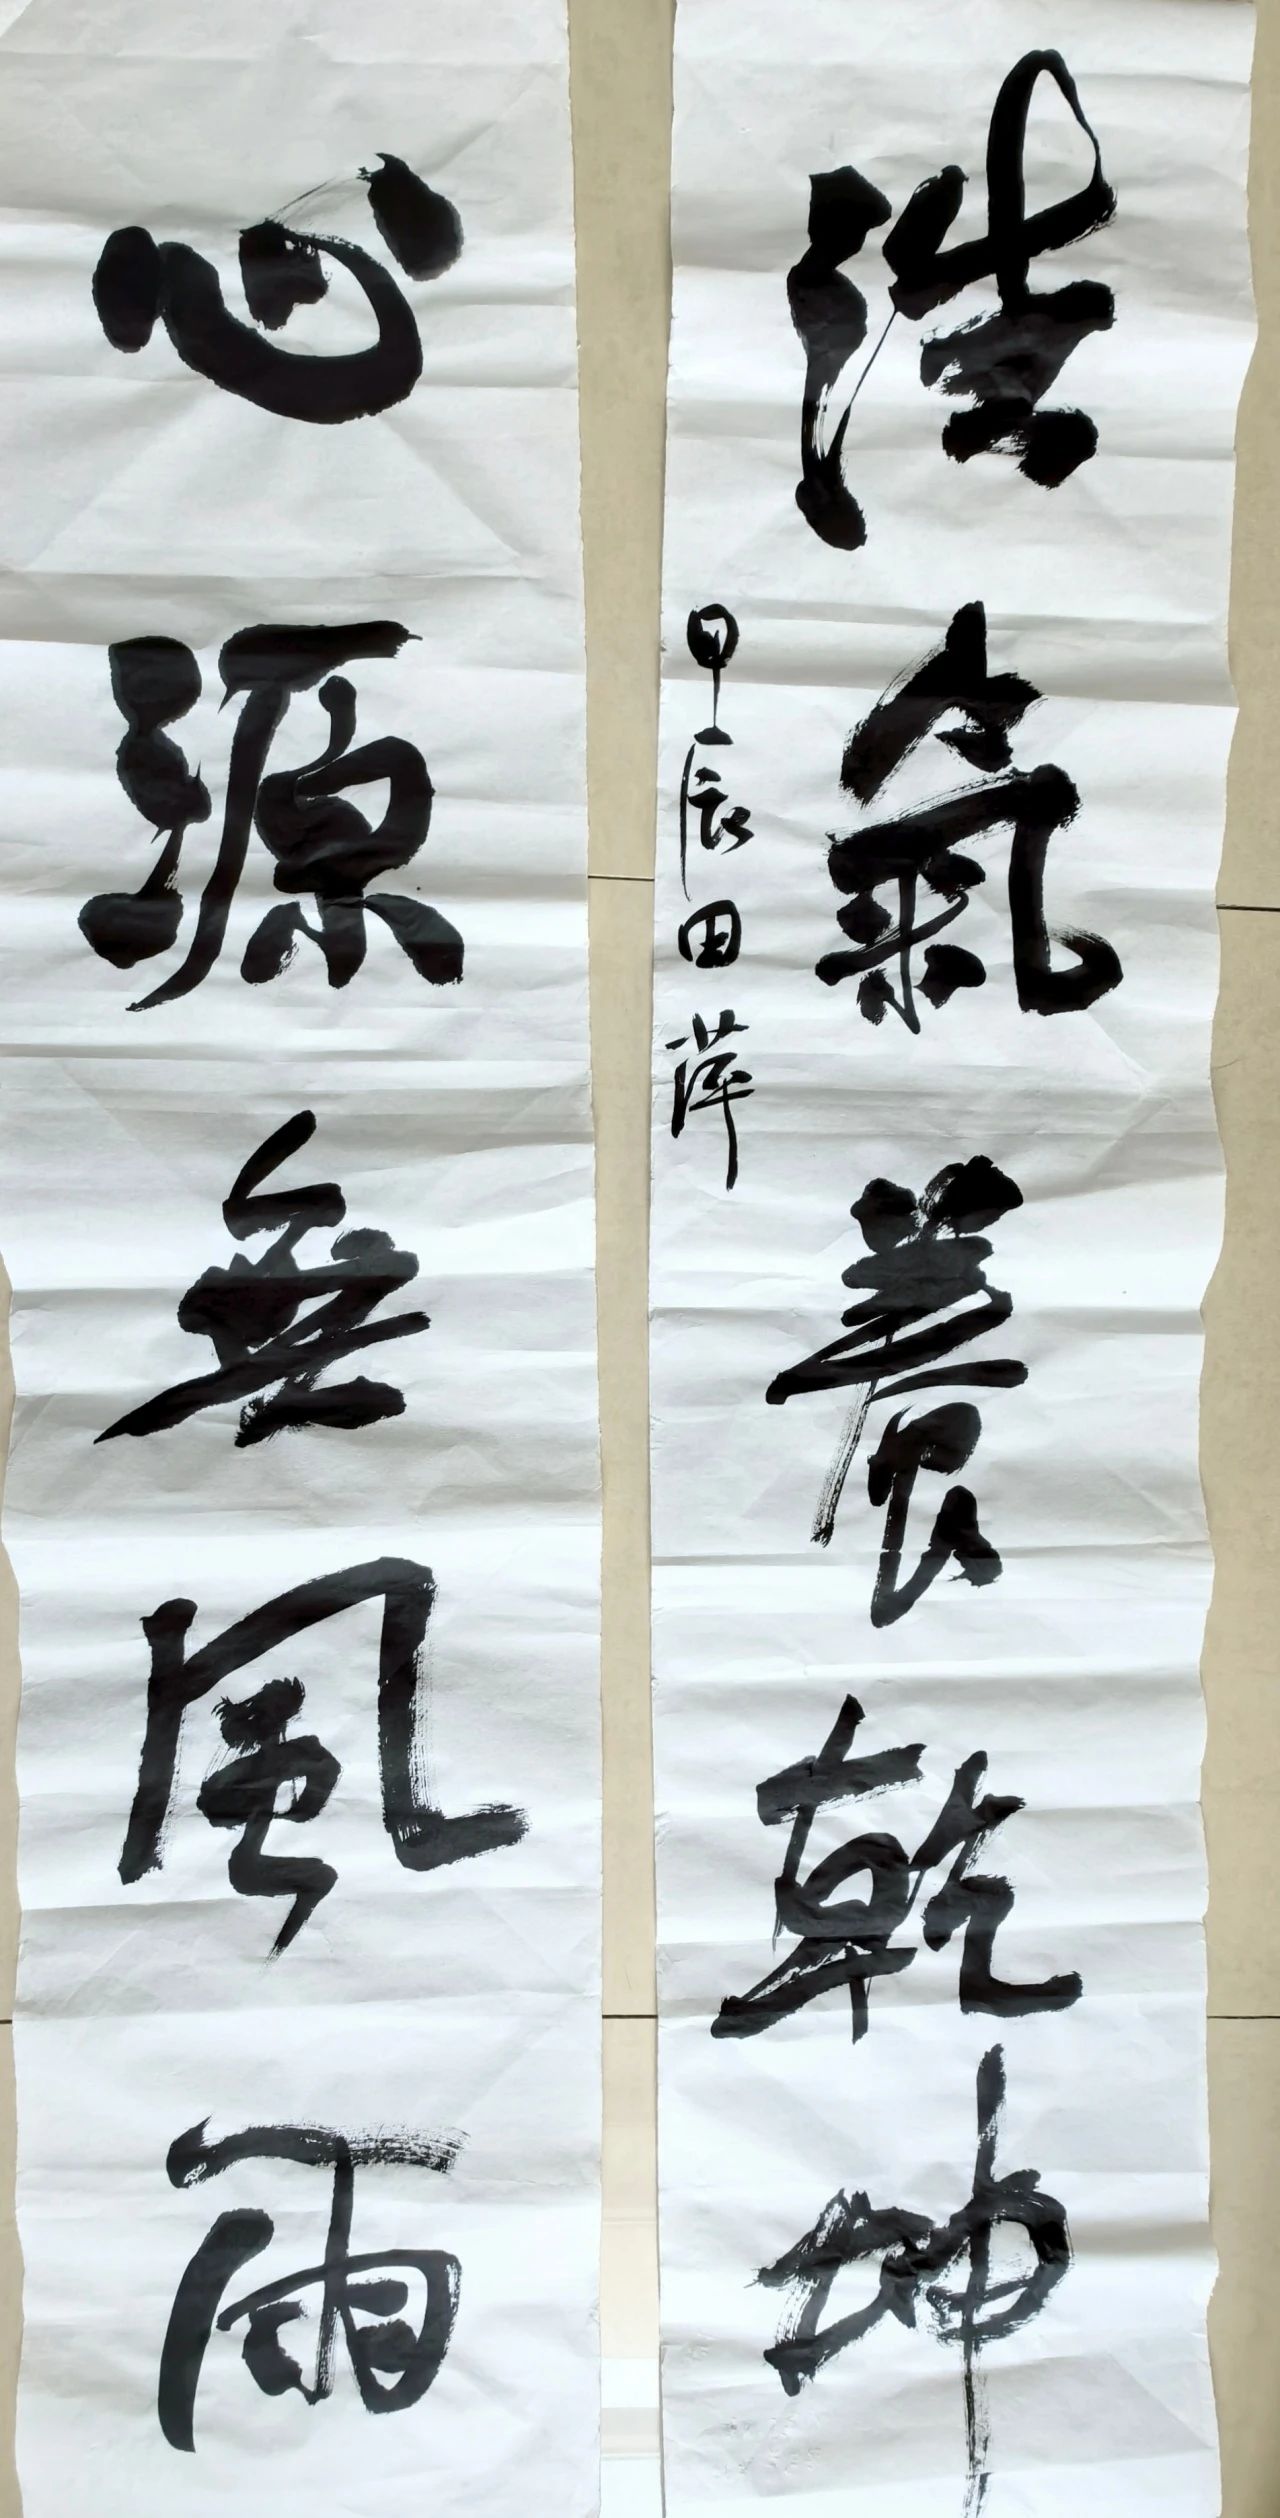 浩氣養乾坤
甲辰田萍
心源無風雨